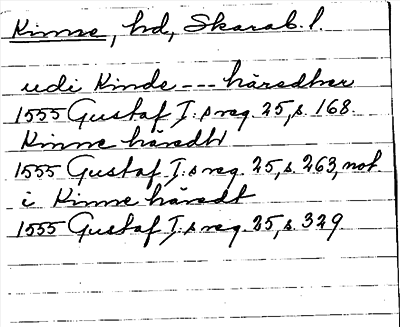 Kinne, hd, Skarab. l.
udi Kinde --- häredher
1555 Gustaf I:s reg. 25, s. 168.
Kinne häredt
1555 Gustaf I:s reg. 25, s. 263, not.
i Kinne häredt
1555 Gustaf I:s reg. 25, s. 329.